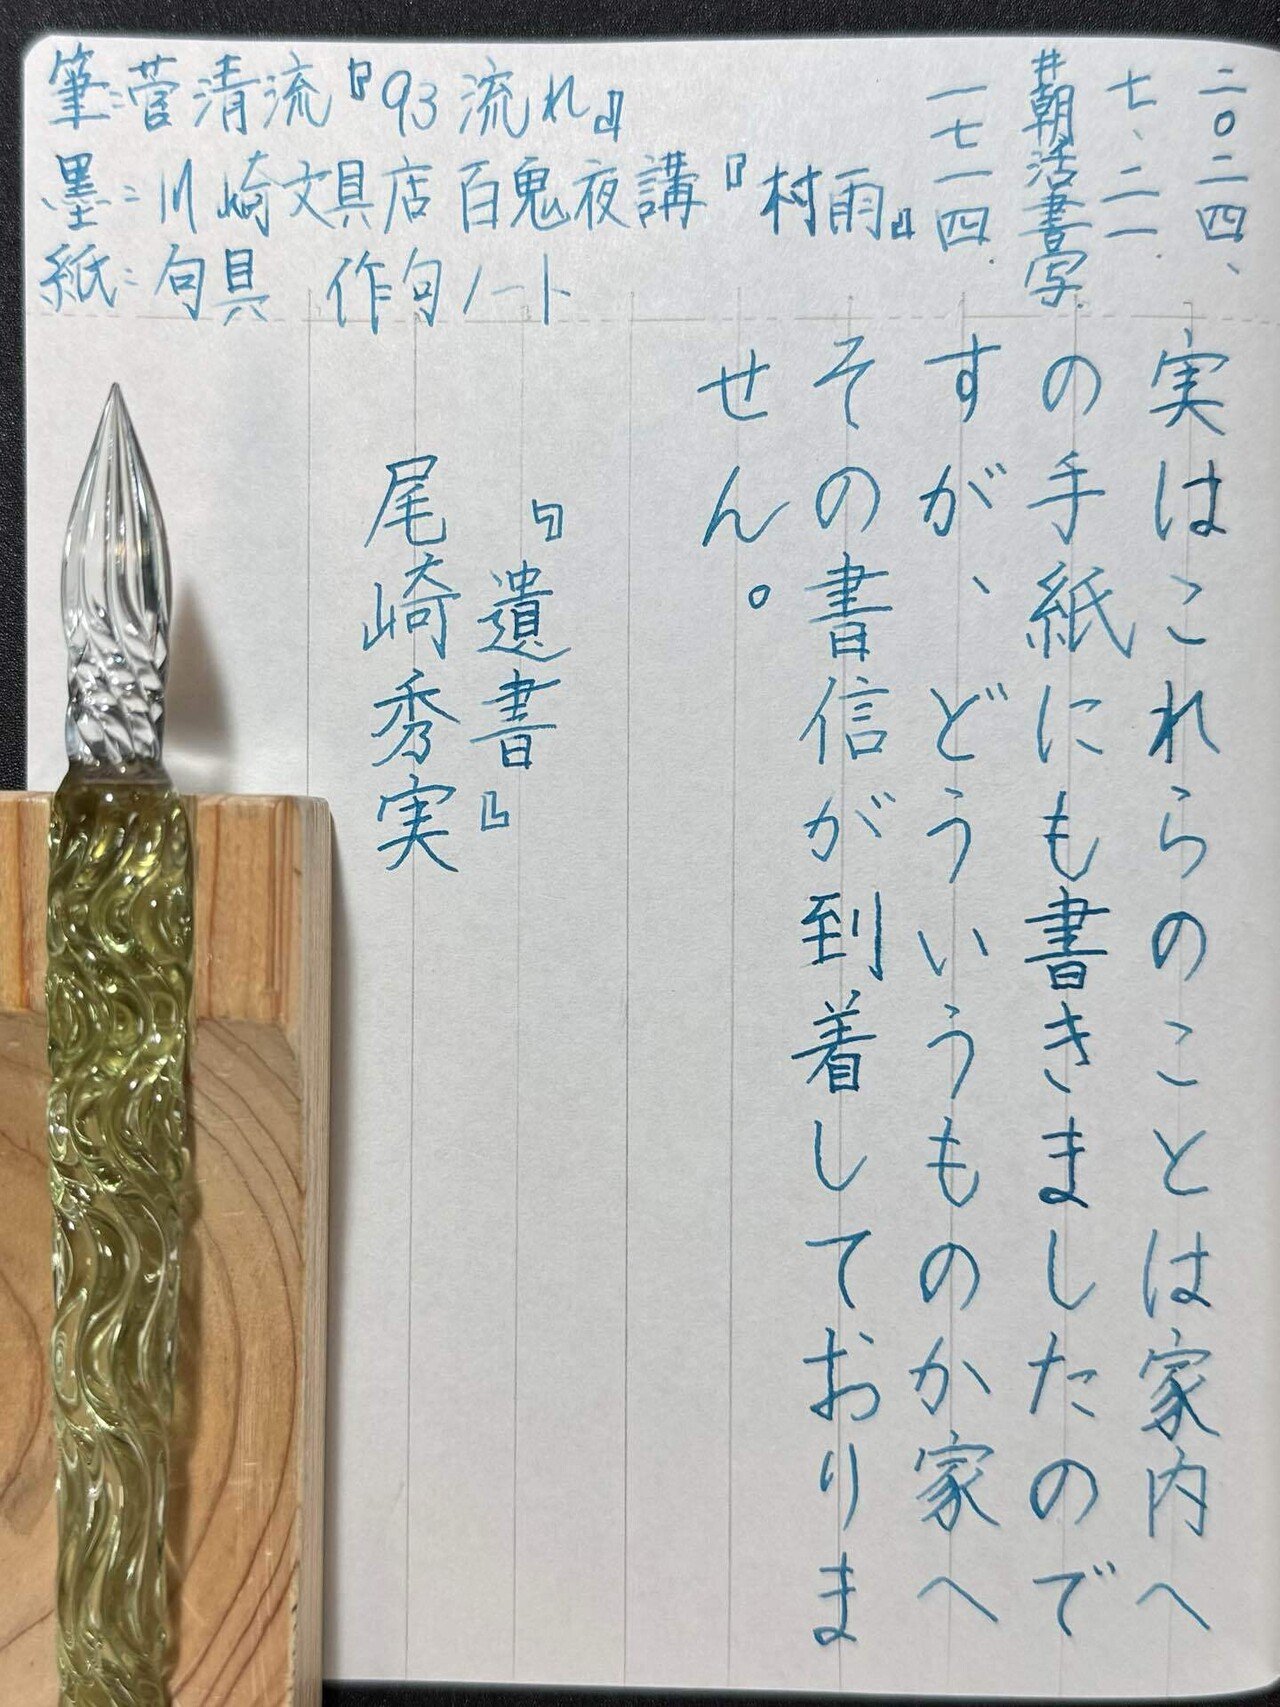 二〇二四、
七、二一
#朝活書写
一七一四.
筆:菅清流『93流れ』
墨:川崎文具店 百鬼夜講『村雨』
紙:句具 作句ノート
実はこれらのことは家内へ
の手紙にも書きましたので
すが、どういうものか家へ
その書信が到着しておりま
せん。
『遺書』
尾崎秀実